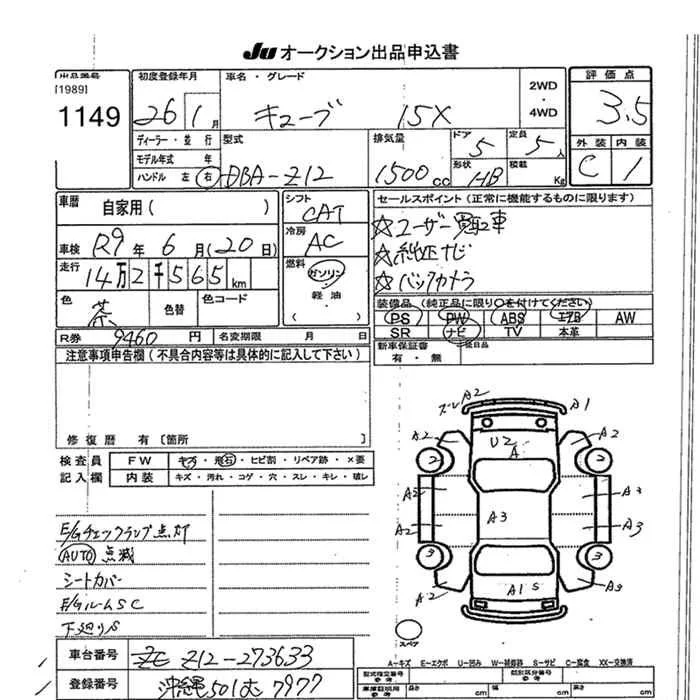 JU オークション出品申込書
出品番号 初度登録年月 車名・グレード 2WD・4WD 評価点
[1989]
1149 26 1月 キューブ 15X 3.5
ディーラー・並行 型式 排気量 ドア 5 定員 5人 外装 内装
モデル年式 年 形状 積載 C 1
ハンドル 左 右 DBA-Z12 1500cc HB Kg
車歴 自家用( ) シフト CAT セールスポイント(正常に機能するものに限ります)
車検 R9年6月(20日) 冷房 AC ☆ユーザー買取車
☆純正ナビ
走行 14万2千565km 燃料 ガソリン・軽油・( ) ☆バックカメラ
色 茶 色替 色コード 装備品(純正品に限り○を付けてください)
PS PW ABS エアB AW
R券 9460円 名変期限 月 日 SR ナビ TV 本革
注意事項申告欄(不具合内容等は具体的に記入して下さい) 新車保証書 後日品
有・無
修復歴 有〔箇所 〕
検査員 FW キズ・飛石・ヒビ割・リペア跡・×要
記入欄 内装 キズ・汚れ・コゲ・穴・スレ・キレ・破レ
E/Gチェックランプ点灯
AUTO点滅
シートカバー
E/GルームSC
下廻りS
ズレA2 A1
A2 U2 A A2
2 2
A2 A3
A3
A2 A3
3 3
A2 A1S A3
スペア
A-キズ E-エクボ U-凹み W-補修跡 S-サビ C-腐食 XX-交換済
車台番号 Z12-273633
登録番号 沖縄501む7977
型式指定番号 参考 類別区分番号 参考
車庫証明用 参考 長 cm 幅 cm 高 cm